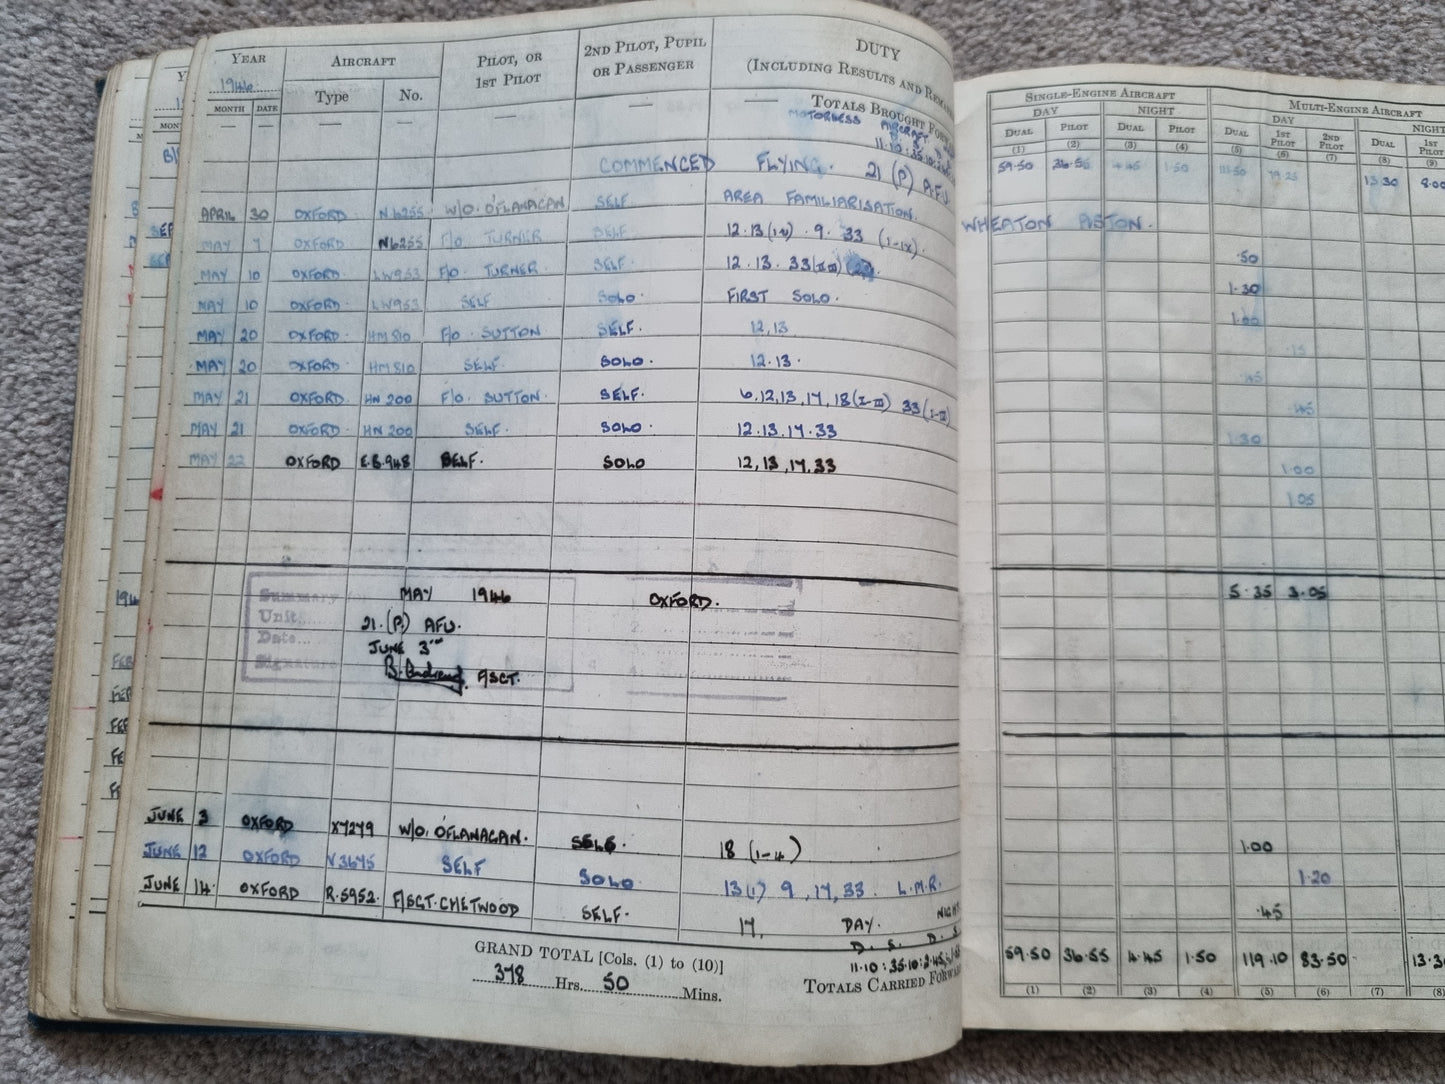 YEAR AIRCRAFT PILOT, OR 1ST PILOT 2ND PILOT, PUPIL OR PASSENGER DUTY (INCLUDING RESULTS AND
1946 MONTH DATE Type No.
TOTALS BROUGHT
MOTORLESS AIRCRAFT
11.10 : 35.10 :
COMMENCED FLYING. 21 (P) A.F.U.
APRIL 30 OXFORD N6255 W/O. O'FLANAGAN SELF AREA FAMILIARISATION.
MAY 7 OXFORD N6255 F/O TURNER SELF 12.13 . 9. 33 (I-IX).
MAY 10 OXFORD. LW953 F/O. TURNER. SELF. 12.13. 33
MAY 10 OXFORD. LW953 SELF SOLO. FIRST SOLO.
MAY 20 OXFORD. HM810 F/O. SUTTON SELF. 12,13
MAY 20 OXFORD. HM810. SELF. SOLO. 12.13.
MAY 21 OXFORD. HN 200 F/O. SUTTON. SELF. 6,12,13,17,18(I-III) 33(I-III)
MAY 21 OXFORD. HN 200 SELF. SOLO. 12.13.17.33
MAY 22 OXFORD E.B.948 SELF. SOLO 12,13,17,33
Summary MAY 1946 OXFORD.
Unit 21.(P.) AFU.
Date... JUNE 3RD
Signature F/SGT.
JUNE 3 OXFORD X7279 W/O. O'FLANAGAN. SELF. 18 (1-4)
JUNE 12 OXFORD V3675 SELF SOLO. 13(1) 9, 17, 33. L.M.R.
JUNE 14. OXFORD R.5952. F/SGT. CHETWOOD SELF. 17, DAY. NIGHT
D. S. D. S.
11.10 : 35.10 : 2.45
GRAND TOTAL [Cols. (1) to (10)]
378 Hrs. 50 Mins.
TOTALS CARRIED
SINGLE-ENGINE AIRCRAFT MULTI-ENGINE AIRCRAFT
DAY NIGHT DAY NIGHT
DUAL PILOT DUAL PILOT DUAL 1ST PILOT 2ND PILOT DUAL 1ST PILOT
(1) (2) (3) (4) (5) (6) (7) (8) (9)
59.50 36.55 4.45 1.50 79.25 13.30 8.00
WHEATON ASTON.
.50
1.30
1.00
.15
.45
.45
1.30
1.00
1.05
5.35 3.05
1.00
1.20
.45
59.50 36.55 4.45 1.50 119.10 83.50 13.3
(1) (2) (3) (4) (5) (6) (7) (8)